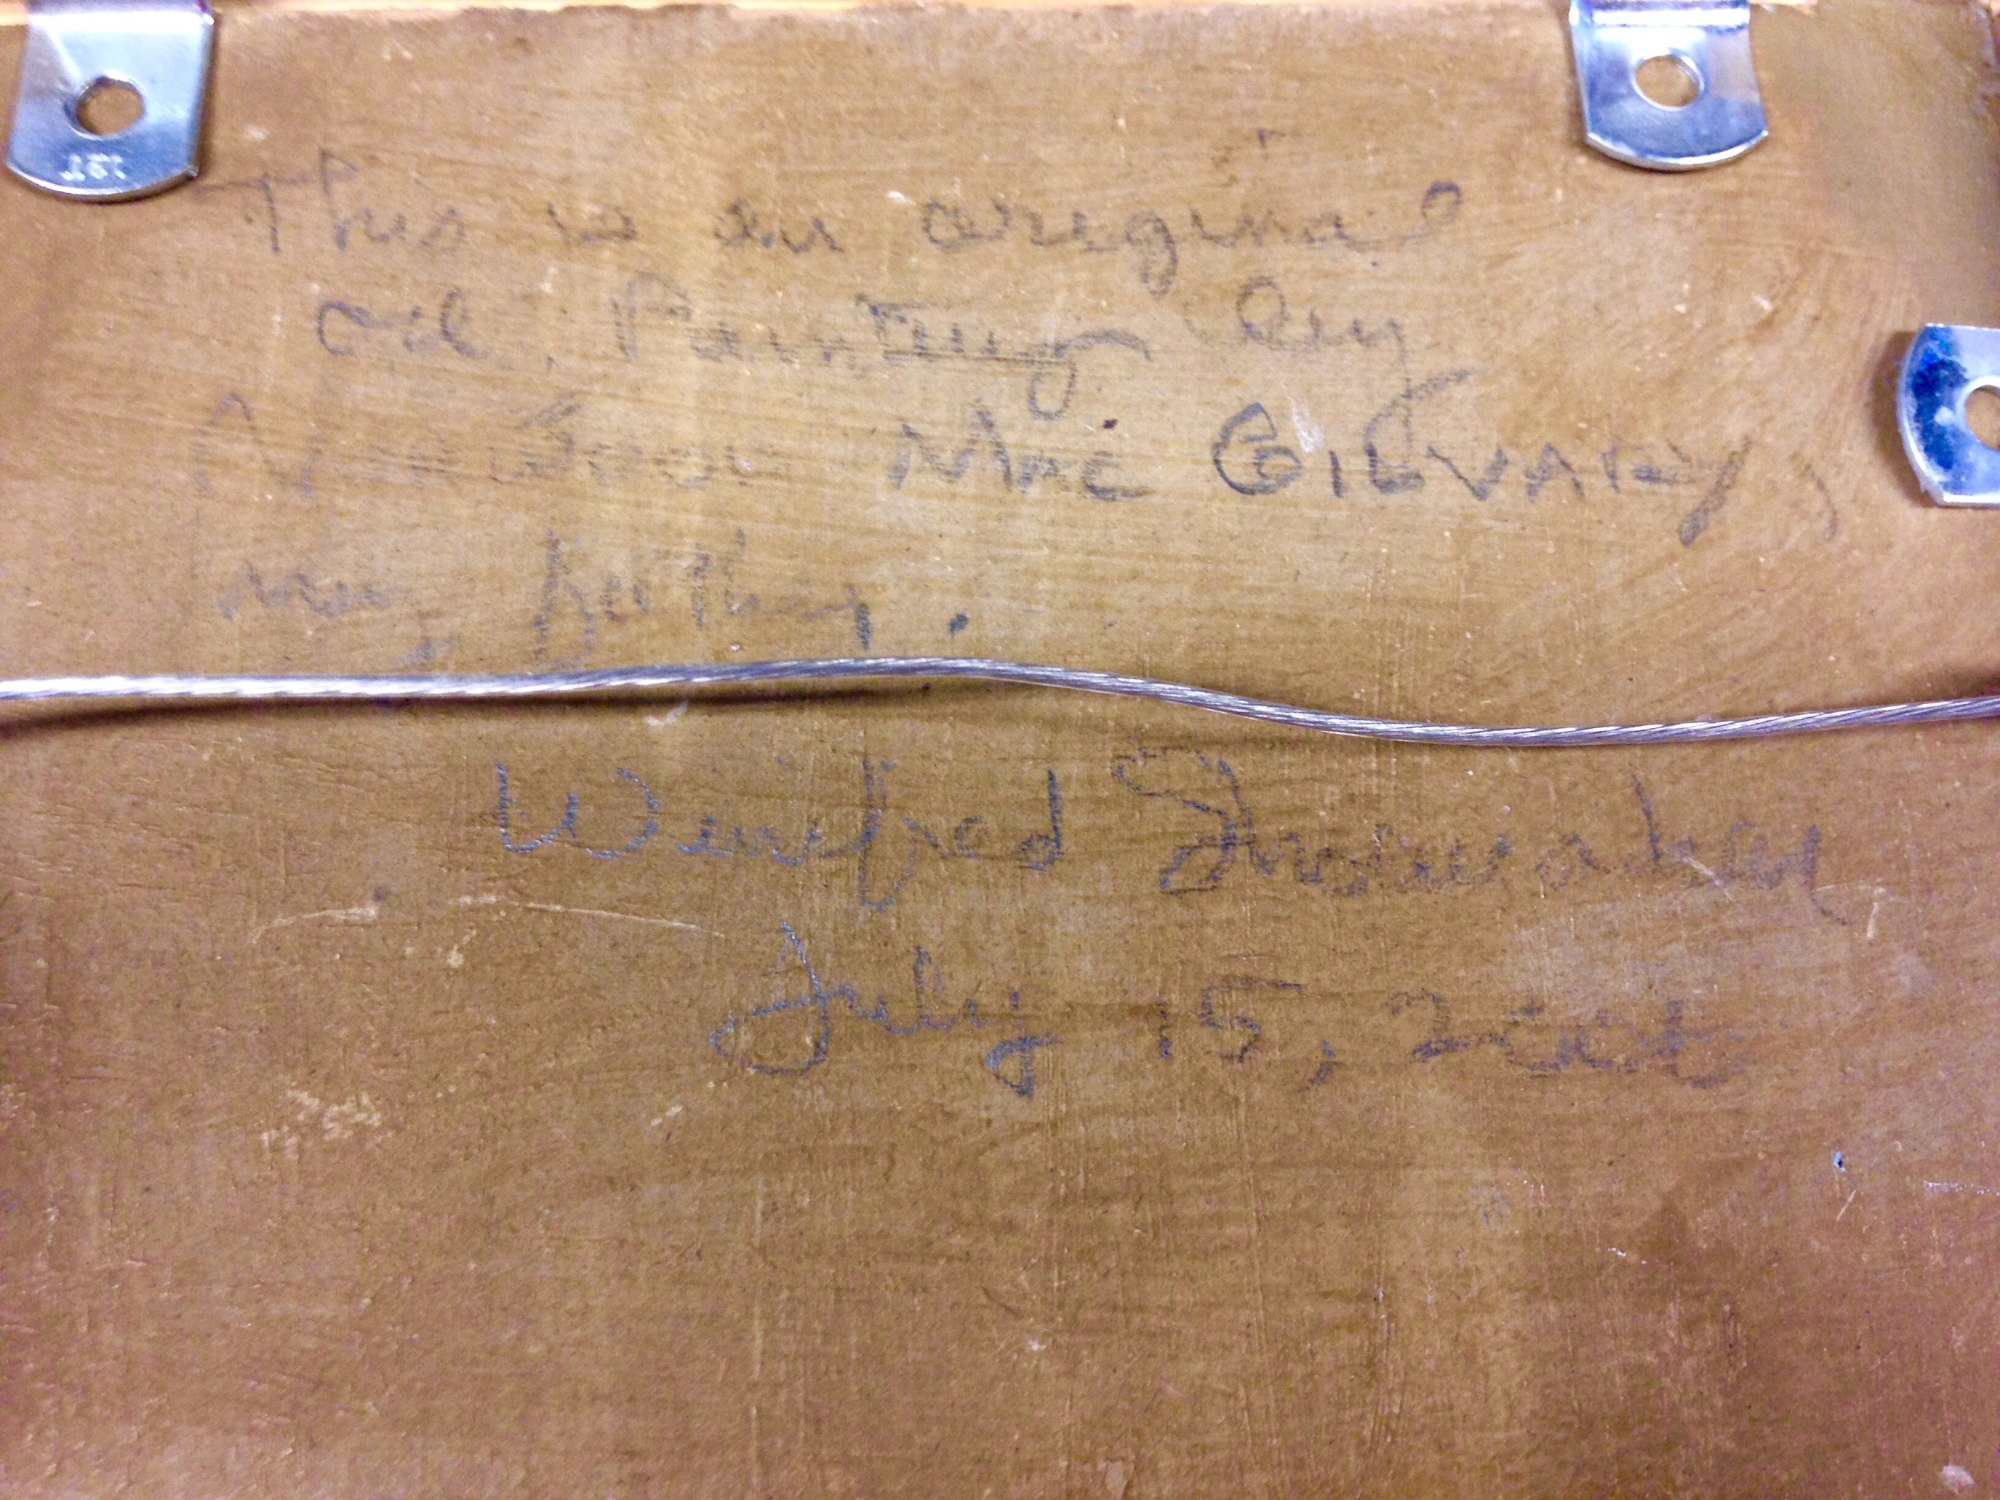 This is an original
oil Painting by
Norton Mac Gilvary,
my father.
Winifred
July 15,